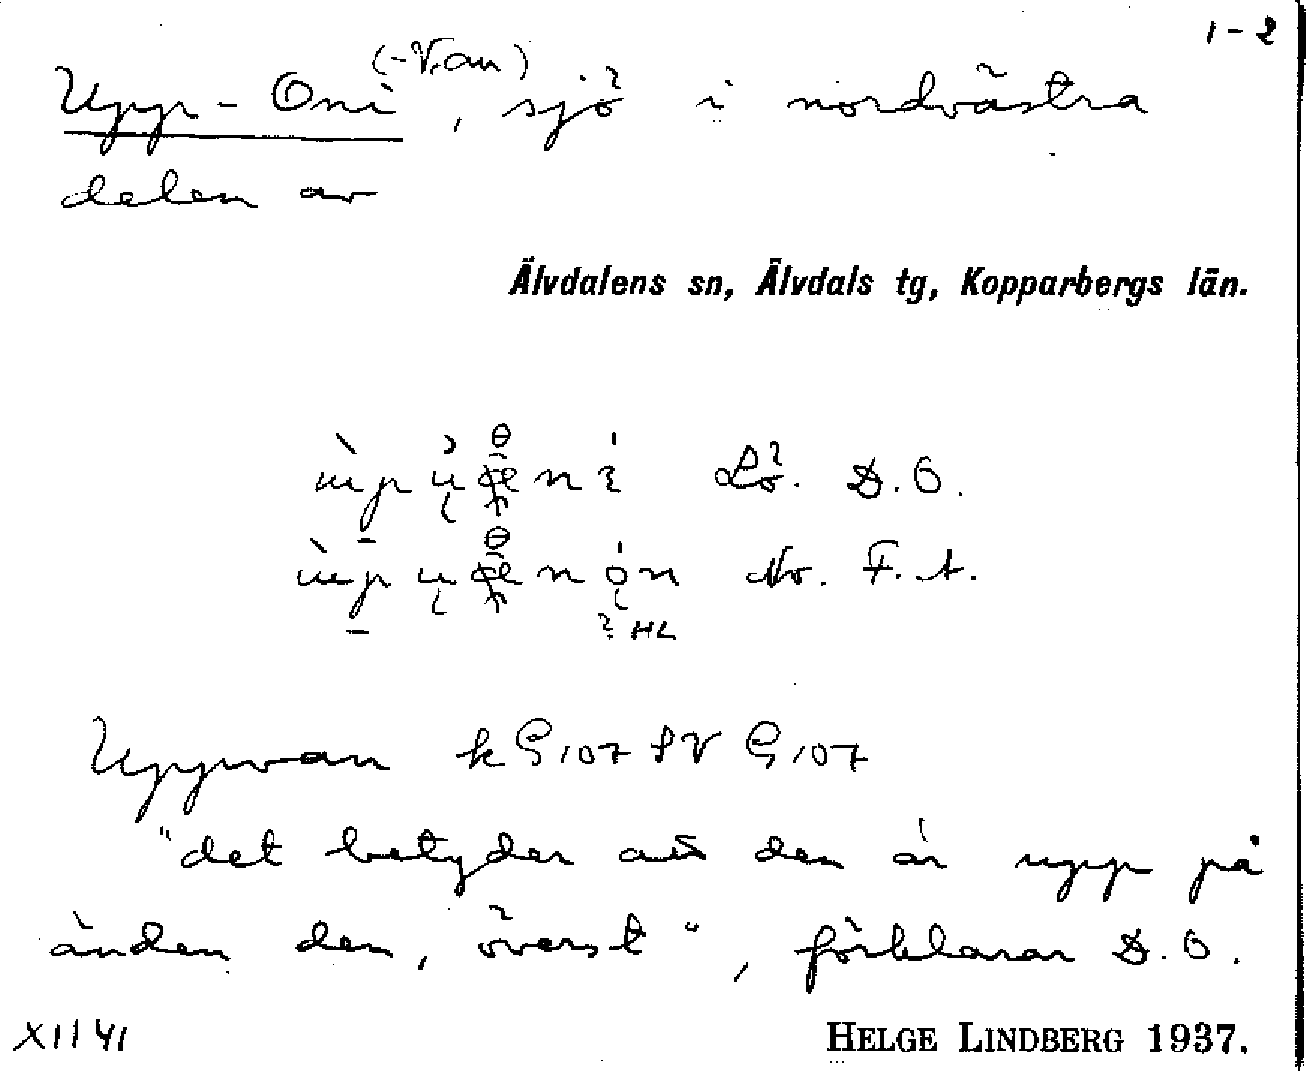 1-2
(-V.an)
Upp-Oni, sjö i nordvästra
delen av
Älvdalens sn, Älvdals tg, Kopparbergs län.
Lo. D.O.
No. F.A.
? HL
Uppwan k G107 SV G107
"det betyder att den är upp på
änden den, överst", förklarar D.O.
XII 41
HELGE LINDBERG 1937.